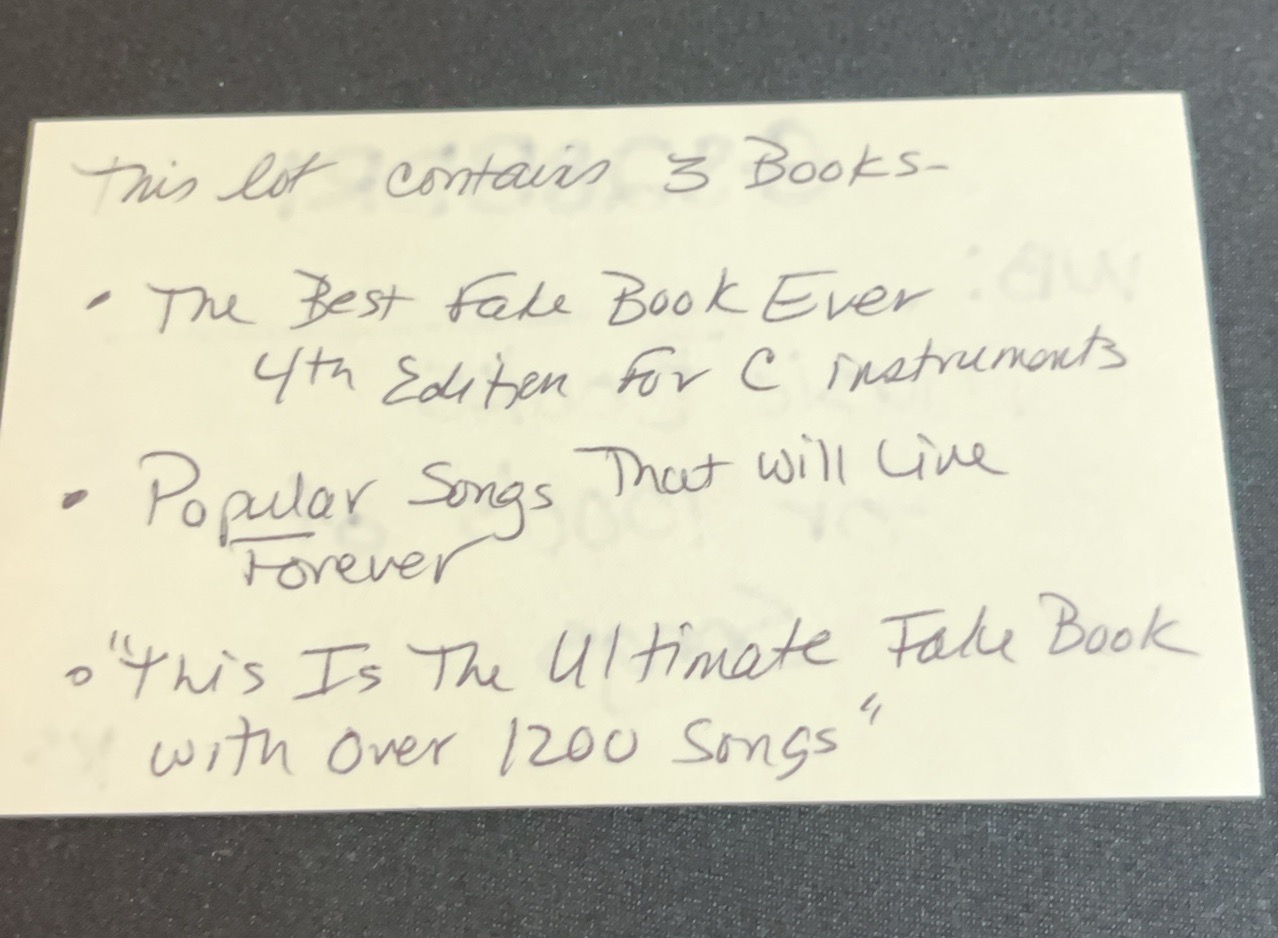 This lot contains 3 Books-
• The Best Fake Book Ever
4th Edition For C instruments
• Popular Songs That will Live
Forever
• "This Is The Ultimate Fake Book
with Over 1200 Songs"